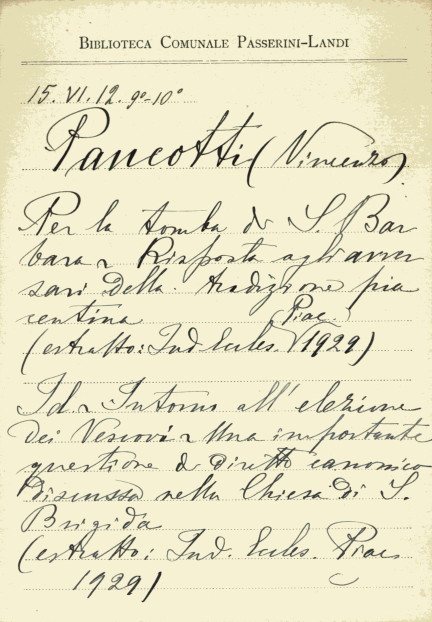 BIBLIOTECA COMUNALE PASSERINI-LANDI
15. VI. 12. 9º-10º
Pancotti (Vincenzo)
Per la tomba di S. Bar
bara ~ Risposta agli avver
sari della tradizione pia
centina Piac.
(estratto: Ind. Eccles. 1929)
Id ~ Intorno all'elezione
dei Vescovi ~ Una importante
questione di diritto canonico
discussa nella Chiesa di S.
Brigida
(estratto: Ind. Eccles. Piac
1929)